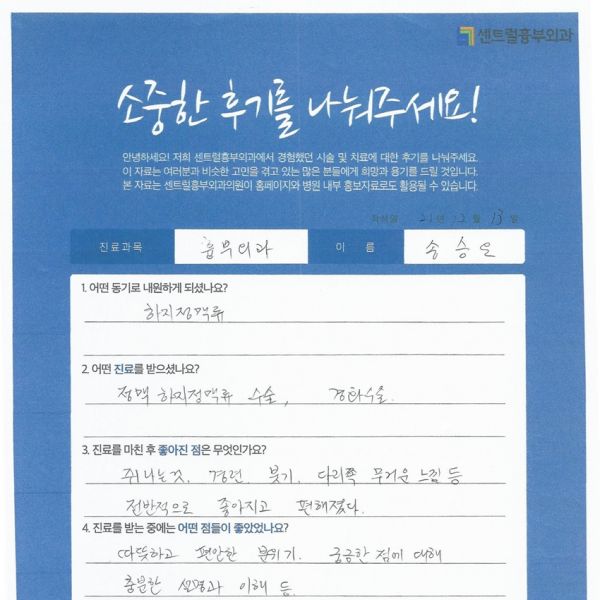 센트럴흉부외과
소중한 후기를 나눠주세요!
안녕하세요! 저희 센트럴흉부외과에서 경험했던 시술 및 치료에 대한 후기를 나눠주세요.
이 자료는 여러분과 비슷한 고민을 겪고 있는 많은 분들에게 희망과 용기를 드릴 것입니다.
본 자료는 센트럴흉부외과의원이 홈페이지와 병원 내부 홍보자료로도 활용될 수 있습니다.
작성일 21년 12월 13일
진료과목 흉부외과 이 름 송승
1. 어떤 동기로 내원하게 되셨나요?
하지정맥류
2. 어떤 진료를 받으셨나요?
정맥 하지정맥류 수술,
3. 진료를 마친 후 좋아진 점은 무엇인가요?
쥐나는것. 경련. 붓기. 다리쪽 무거운 느낌 등
전반적으로 좋아지고 편해졌다.
4. 진료를 받는 중에는 어떤 점들이 좋았었나요?
따뜻하고 편안한 분위기. 궁금한 점에 대해
충분한 설명과 이해 등.